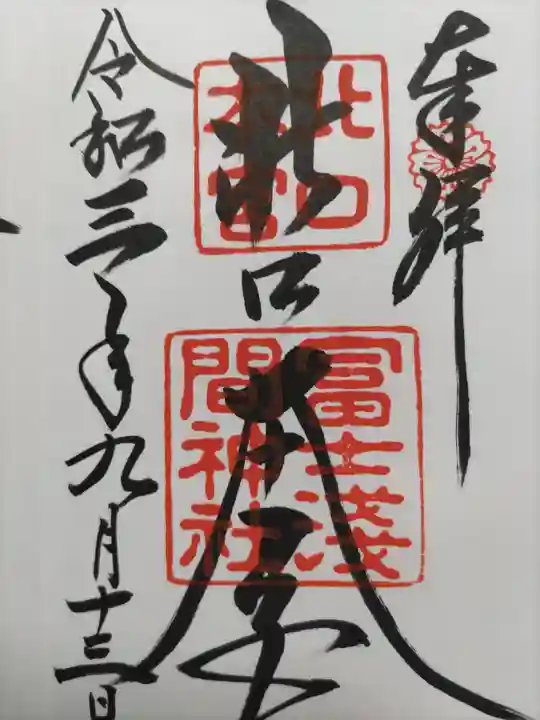 奉拝
北口
大宮
北口本宮
冨士淺
間神社
令和三年九月十三日